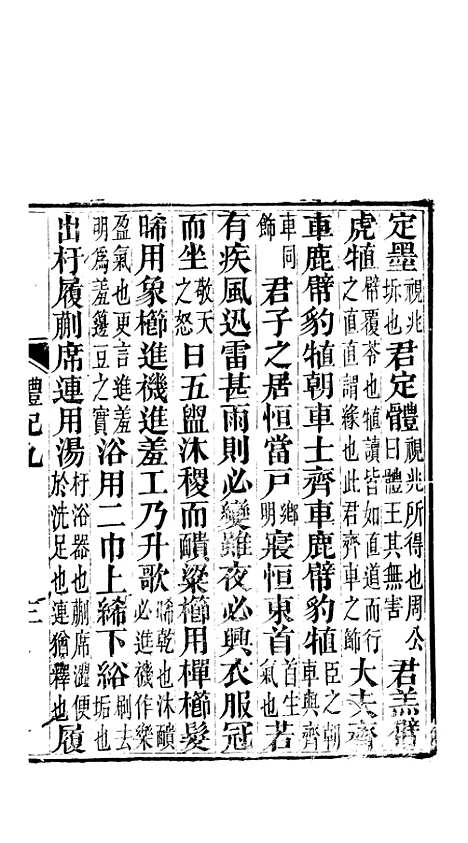 定墨視兆坼也君定體視兆所得也周公曰體王其無害君羔幦
虎犆幦覆苓也犆讀皆如直道而行之直直謂緣也此君齊車之飾大夫齊
車鹿幦豹犆朝車士齊車鹿幦豹犆臣之朝車與齊
車同飾君子之居恒當戶鄉明寢恒東首首生氣也若
有疾風迅雷甚雨則必變雖夜必興衣服冠
而坐敬天之怒日五盥沐稷而靧粱櫛用樿櫛髮
晞用象櫛進禨進羞工乃升歌晞乾也沐靧必進禨作樂
盈氣也更言進羞明為羞籩豆之實浴用二巾上絺下綌刷去垢也
出杅履蒯席連用湯杅浴器也蒯席澀便於洗足也連猶釋也履
禮記九
三